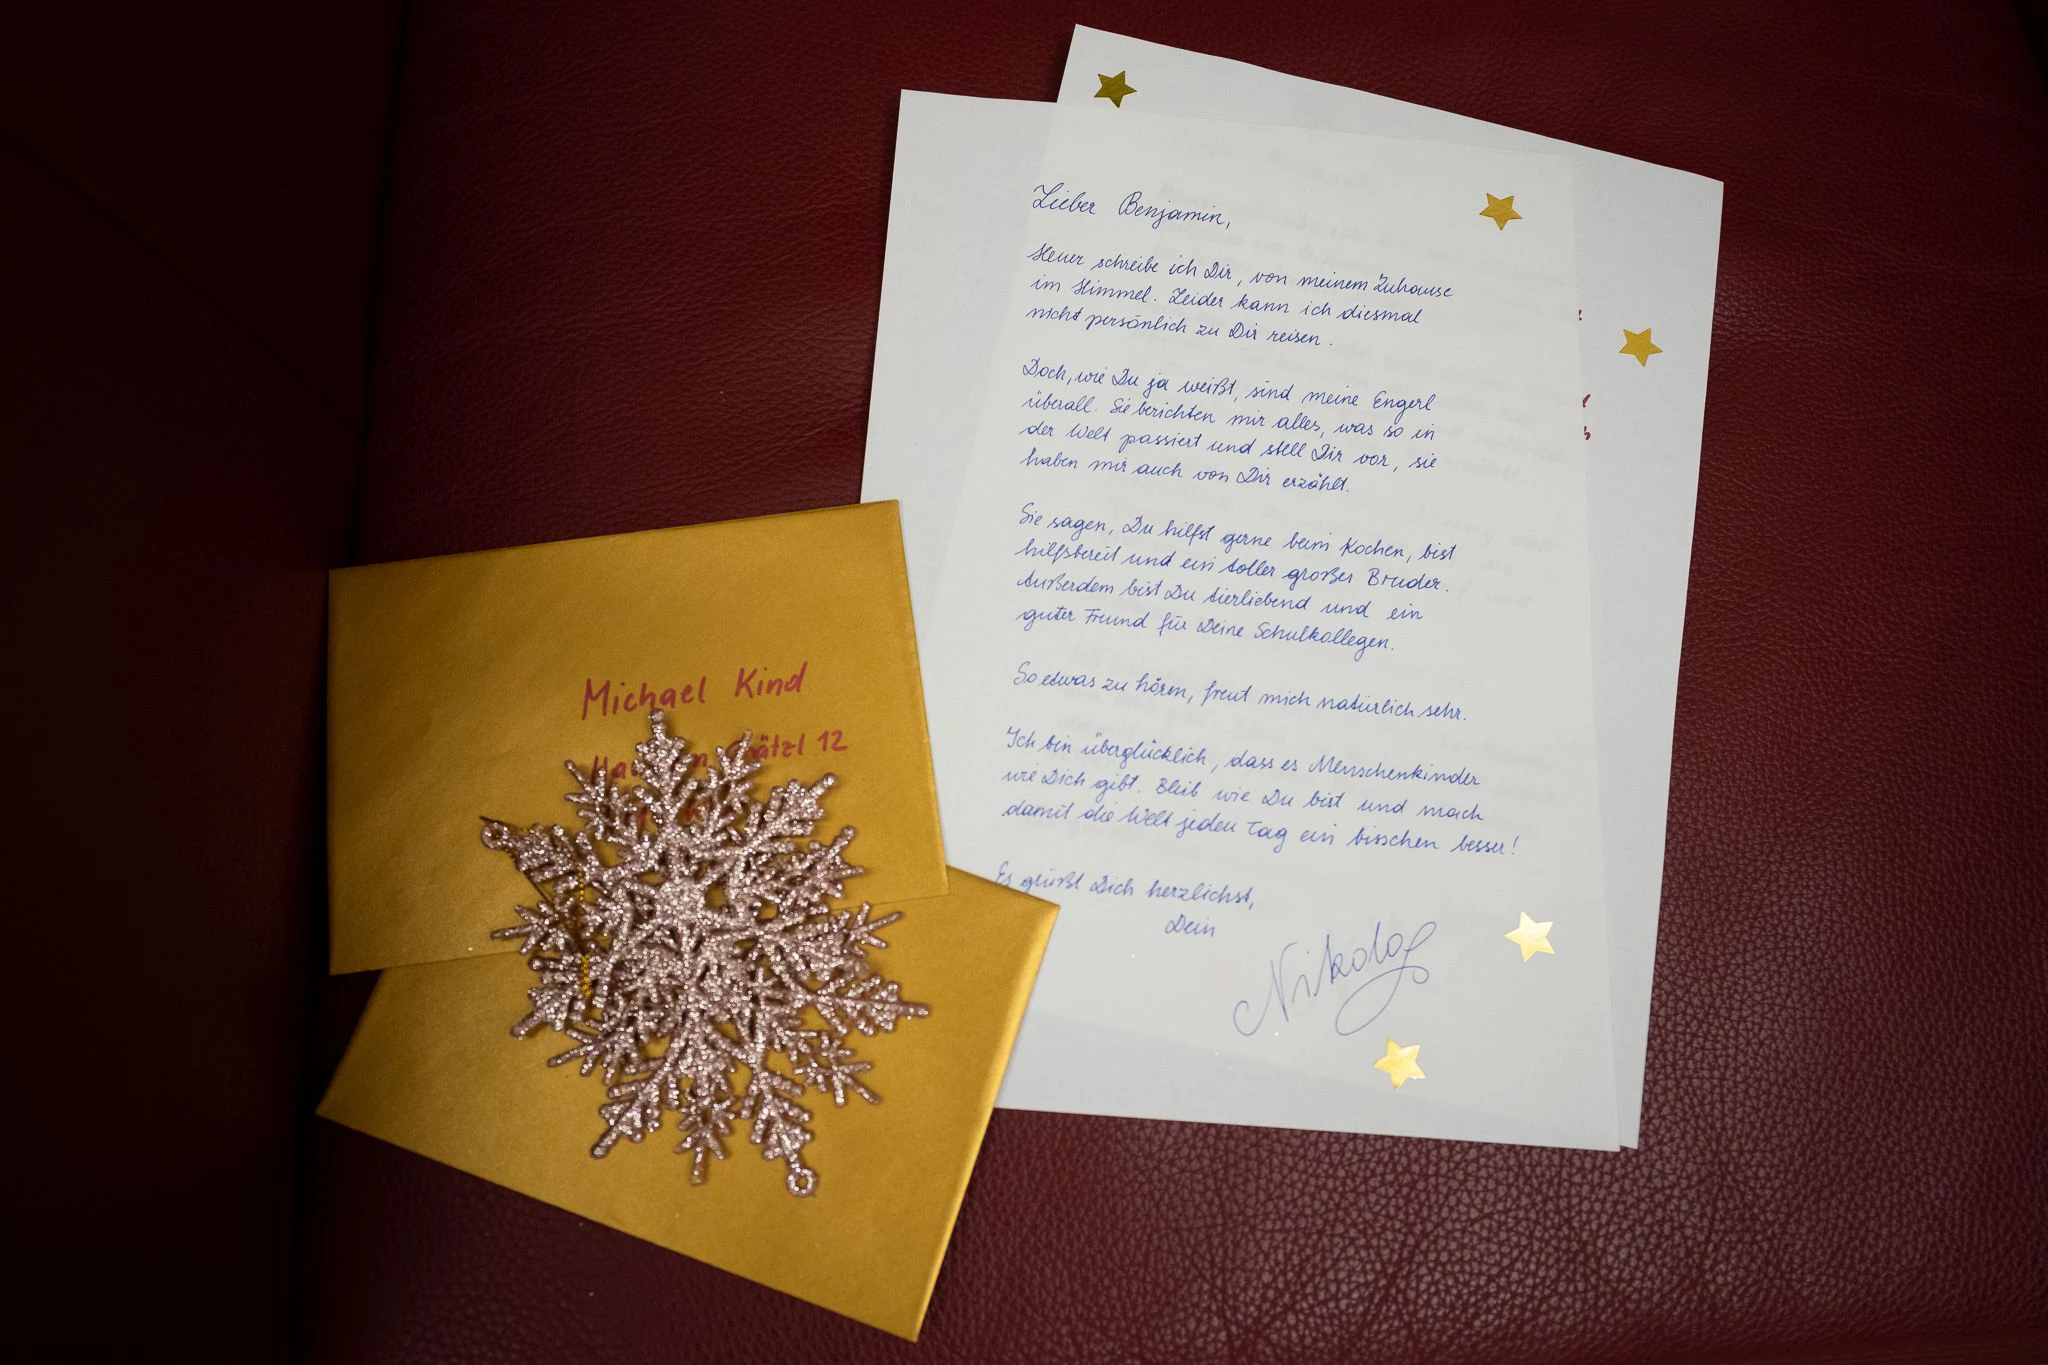 Michael Kind
12
Lieber Benjamin,
Heuer schreibe ich Dir, von meinem Zuhause
im Himmel. Leider kann ich diesmal
nicht persönlich zu Dir reisen.
Doch, wie Du ja weißt, sind meine Engerl
überall. Sie berichten mir alles, was so in
der Welt passiert und stell Dir vor, sie
haben mir auch von Dir erzählt.
Sie sagen, Du hilfst gerne beim Kochen, bist
hilfsbereit und ein toller großer Bruder.
Außerdem bist Du tierliebend und ein
guter Freund für Deine Schulkollegen.
So etwas zu hören, freut mich natürlich sehr.
Ich bin überglücklich, dass es Menschenkinder
wie Dich gibt. Bleib wie Du bist und mach
damit die Welt jeden Tag ein bisschen besser!
Es grüßt Dich herzlichst,
Dein
Nikolo